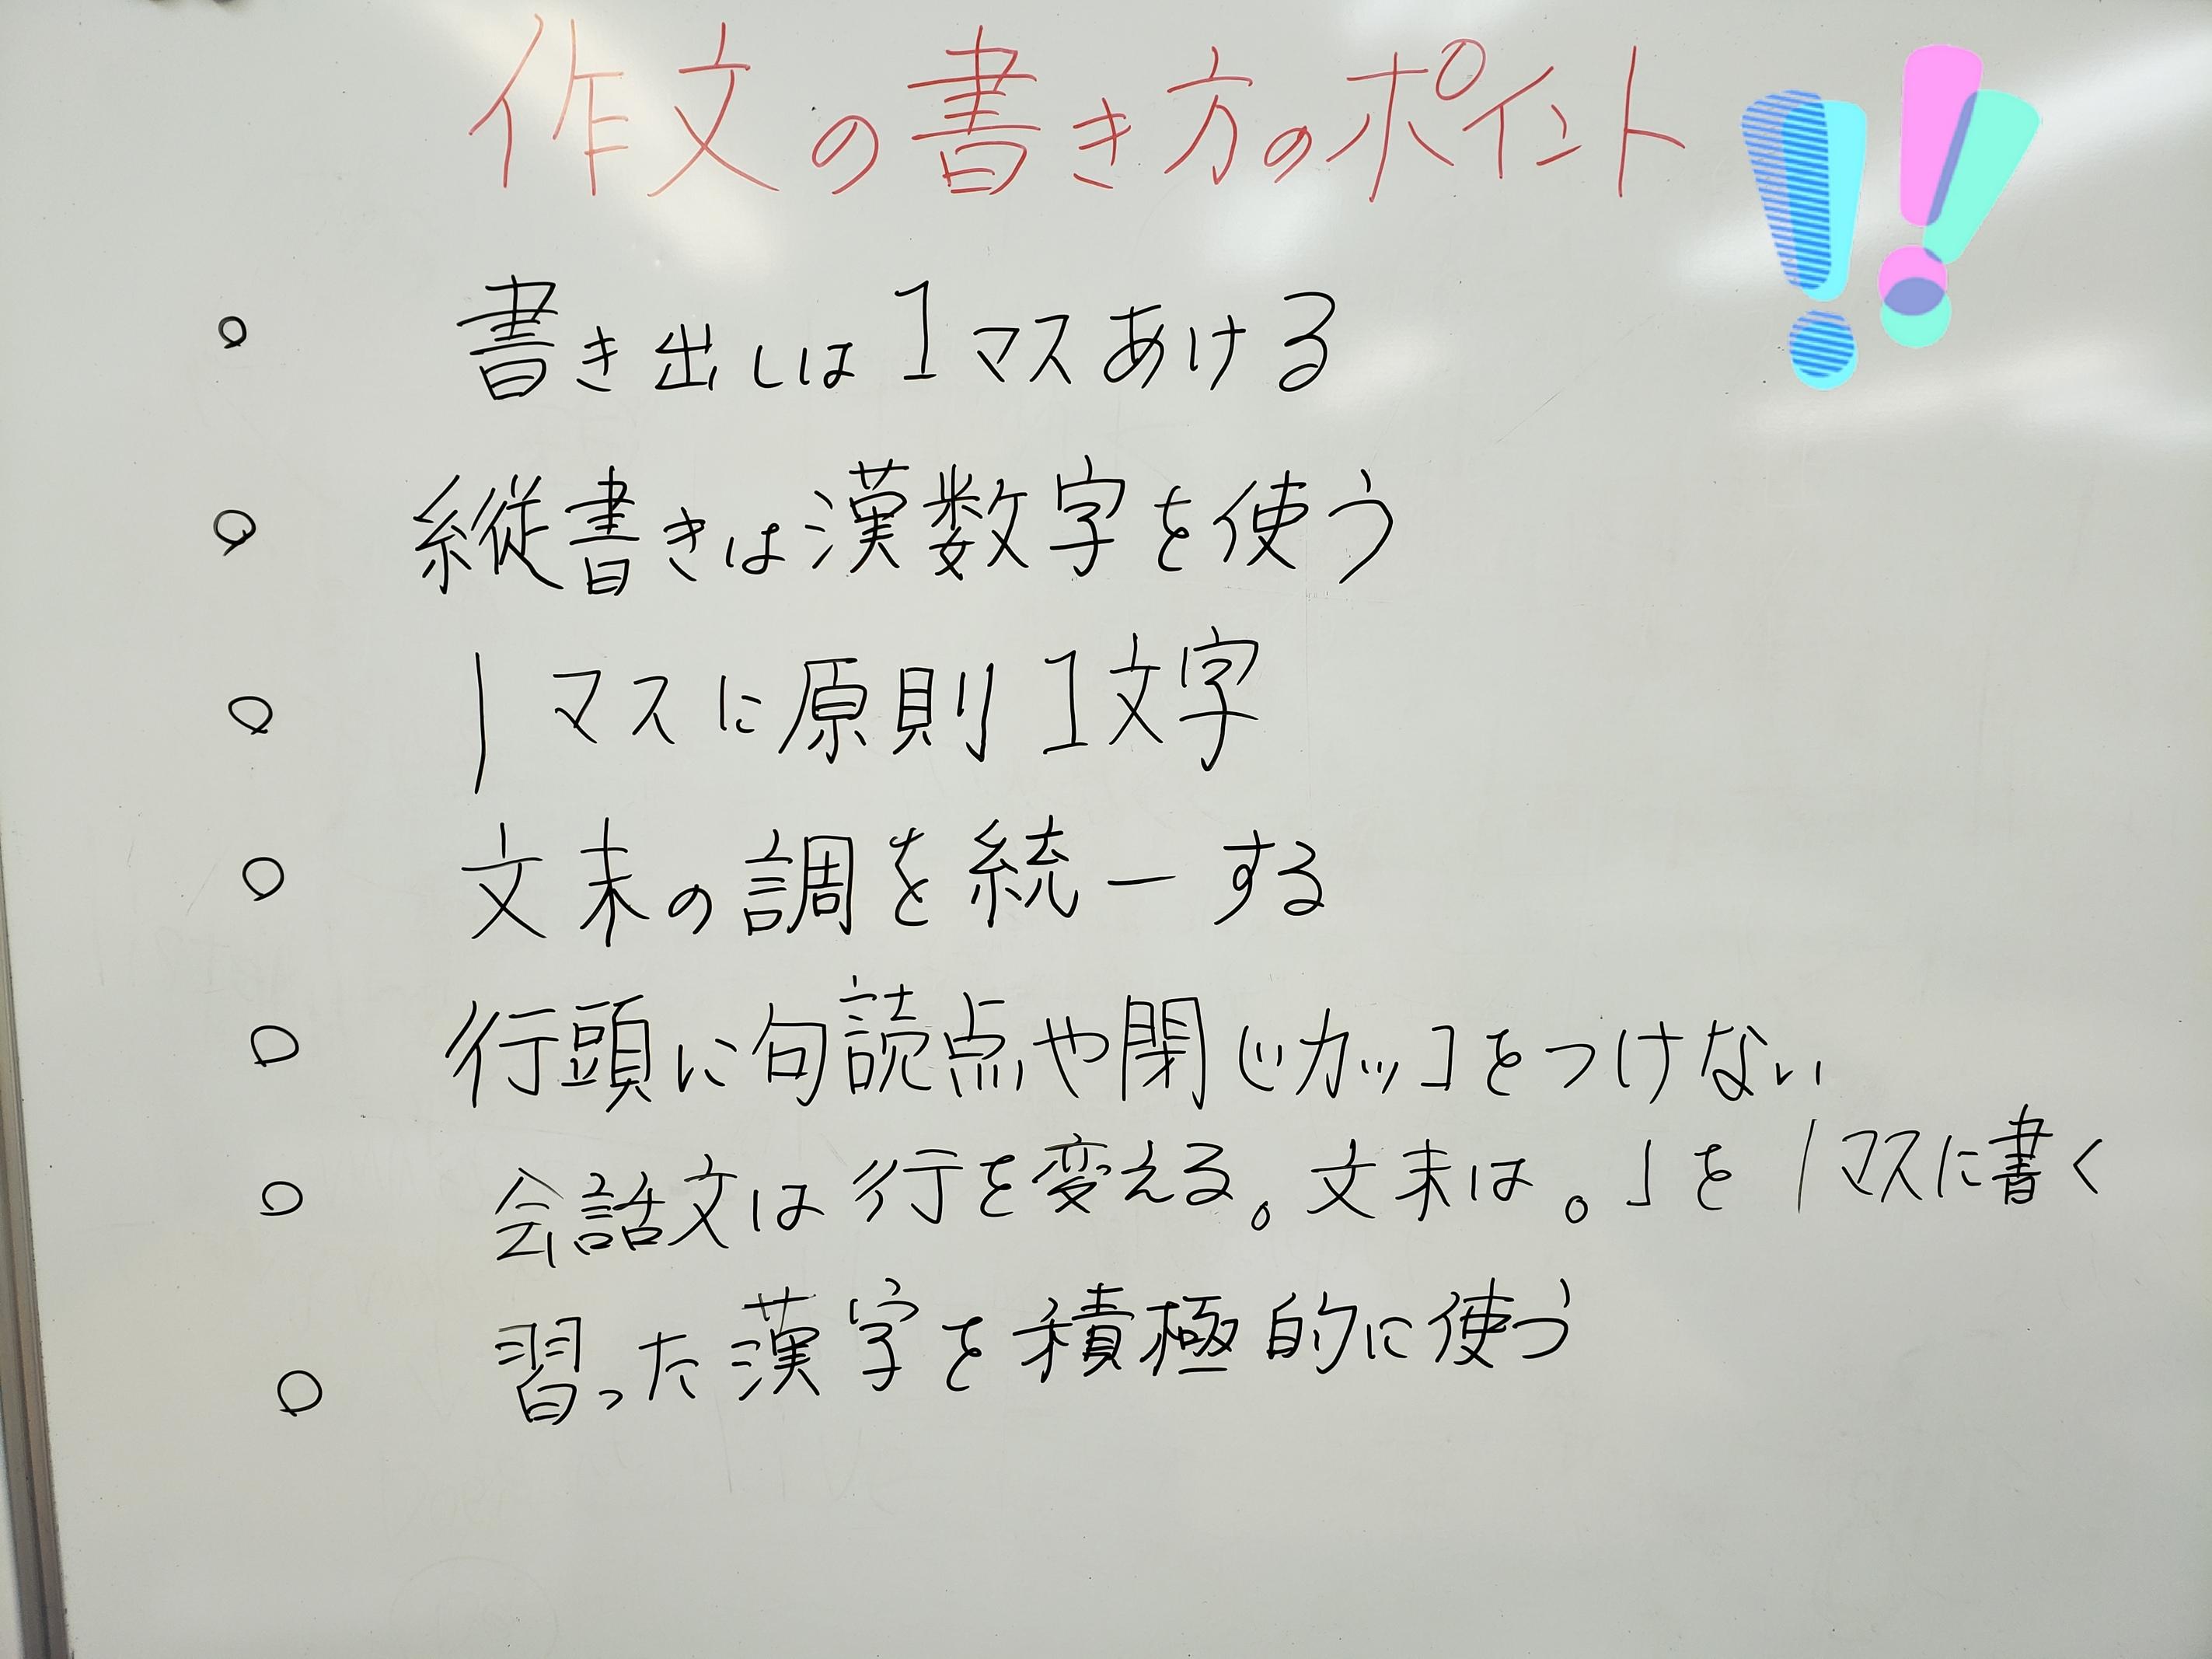 作文の書き方のポイント!!
○ 書き出しは1マスあける
○ 縦書きは漢数字を使う
○ 1マスに原則1文字
○ 文末の調を統一する
○ 行頭に句読点や閉じカッコをつけない
○ 会話文は行を変える。文末は。」を1マスに書く
○ 習った漢字を積極的に使う